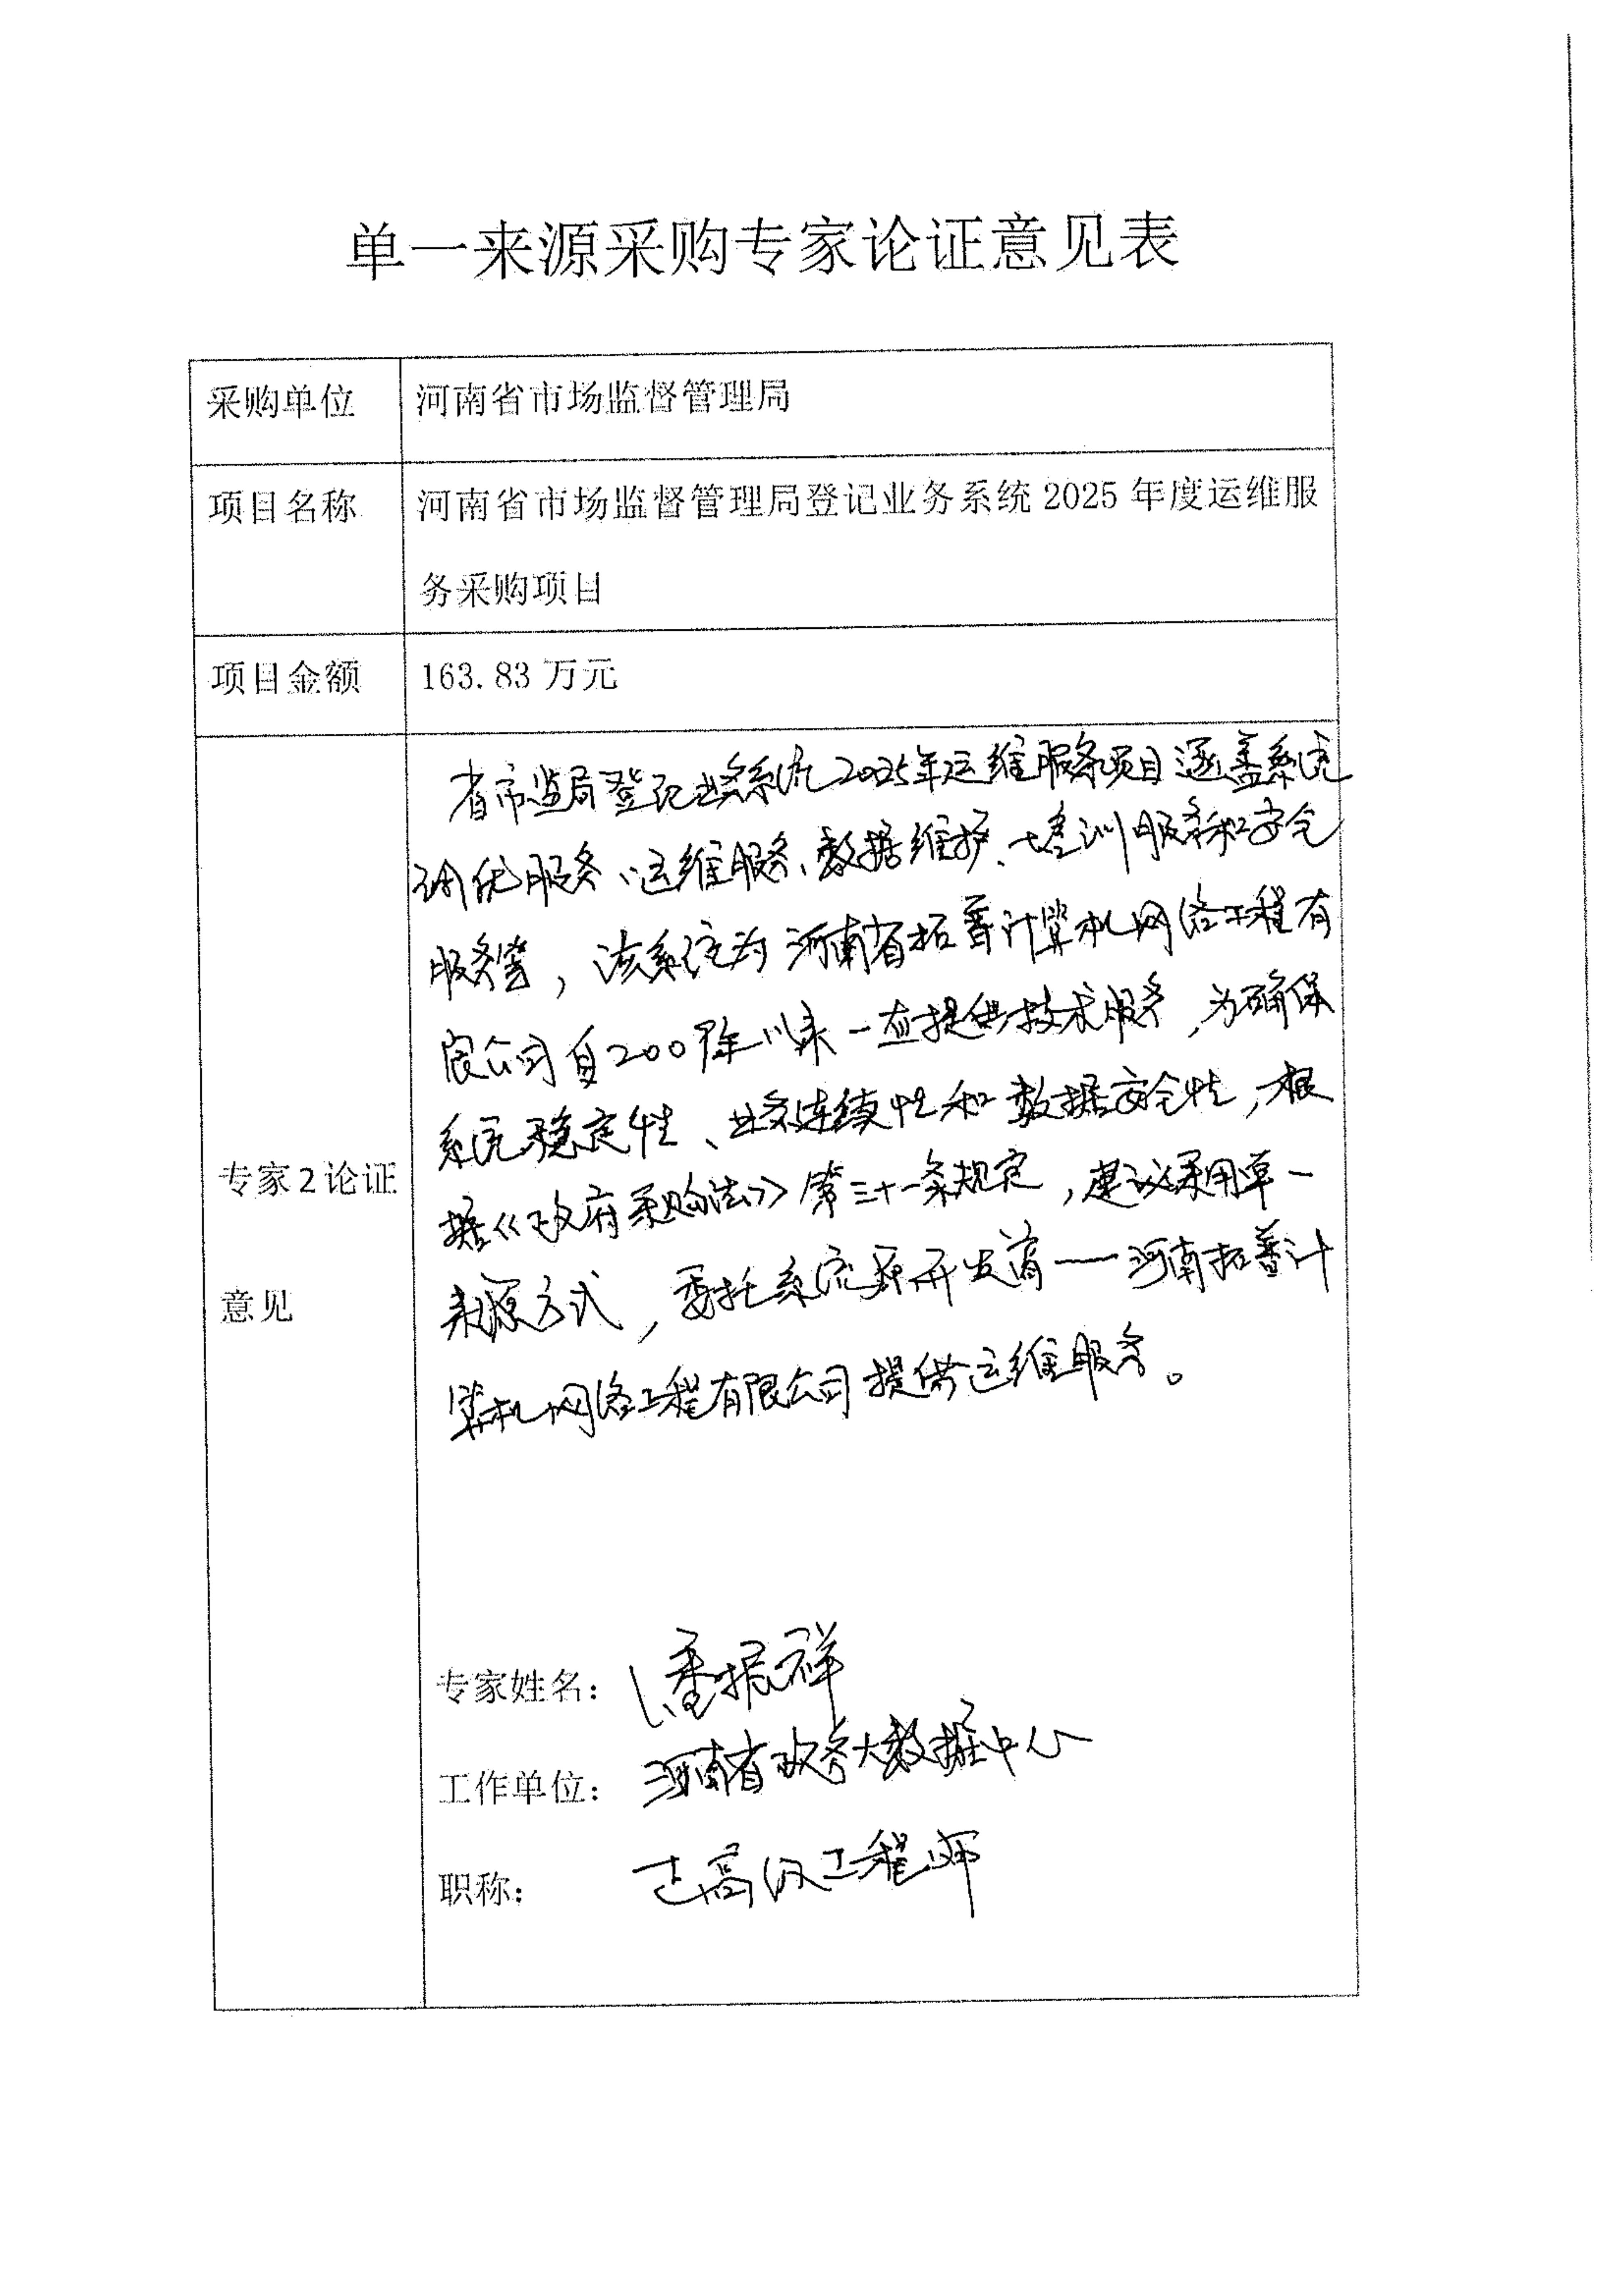 单一来源采购专家论证意见表
采购单位
河南省市场监督管理局
项目名称
河南省市场监督管理局登记业务系统 2025 年度运维服
务采购项目
项目金额
163.83 万元
专家2论证
意见
省市监局登记业务系统2025年运维服务项目涵盖系统
调优服务、运维服务、数据维护、培训服务和安全
服务等，该系统为河南省拓普计算机网络工程有
限公司自200年以来一直提供技术服务，为确保
系统稳定性、业务连续性和数据安全性，根
据《政府采购法》第三十一条规定，建议采用单一
来源方式，委托系统原开发商——河南拓普计
算机网络工程有限公司提供运维服务。
专家姓名：潘振祥
工作单位：河南省政务大数据中心
职称：正高级工程师